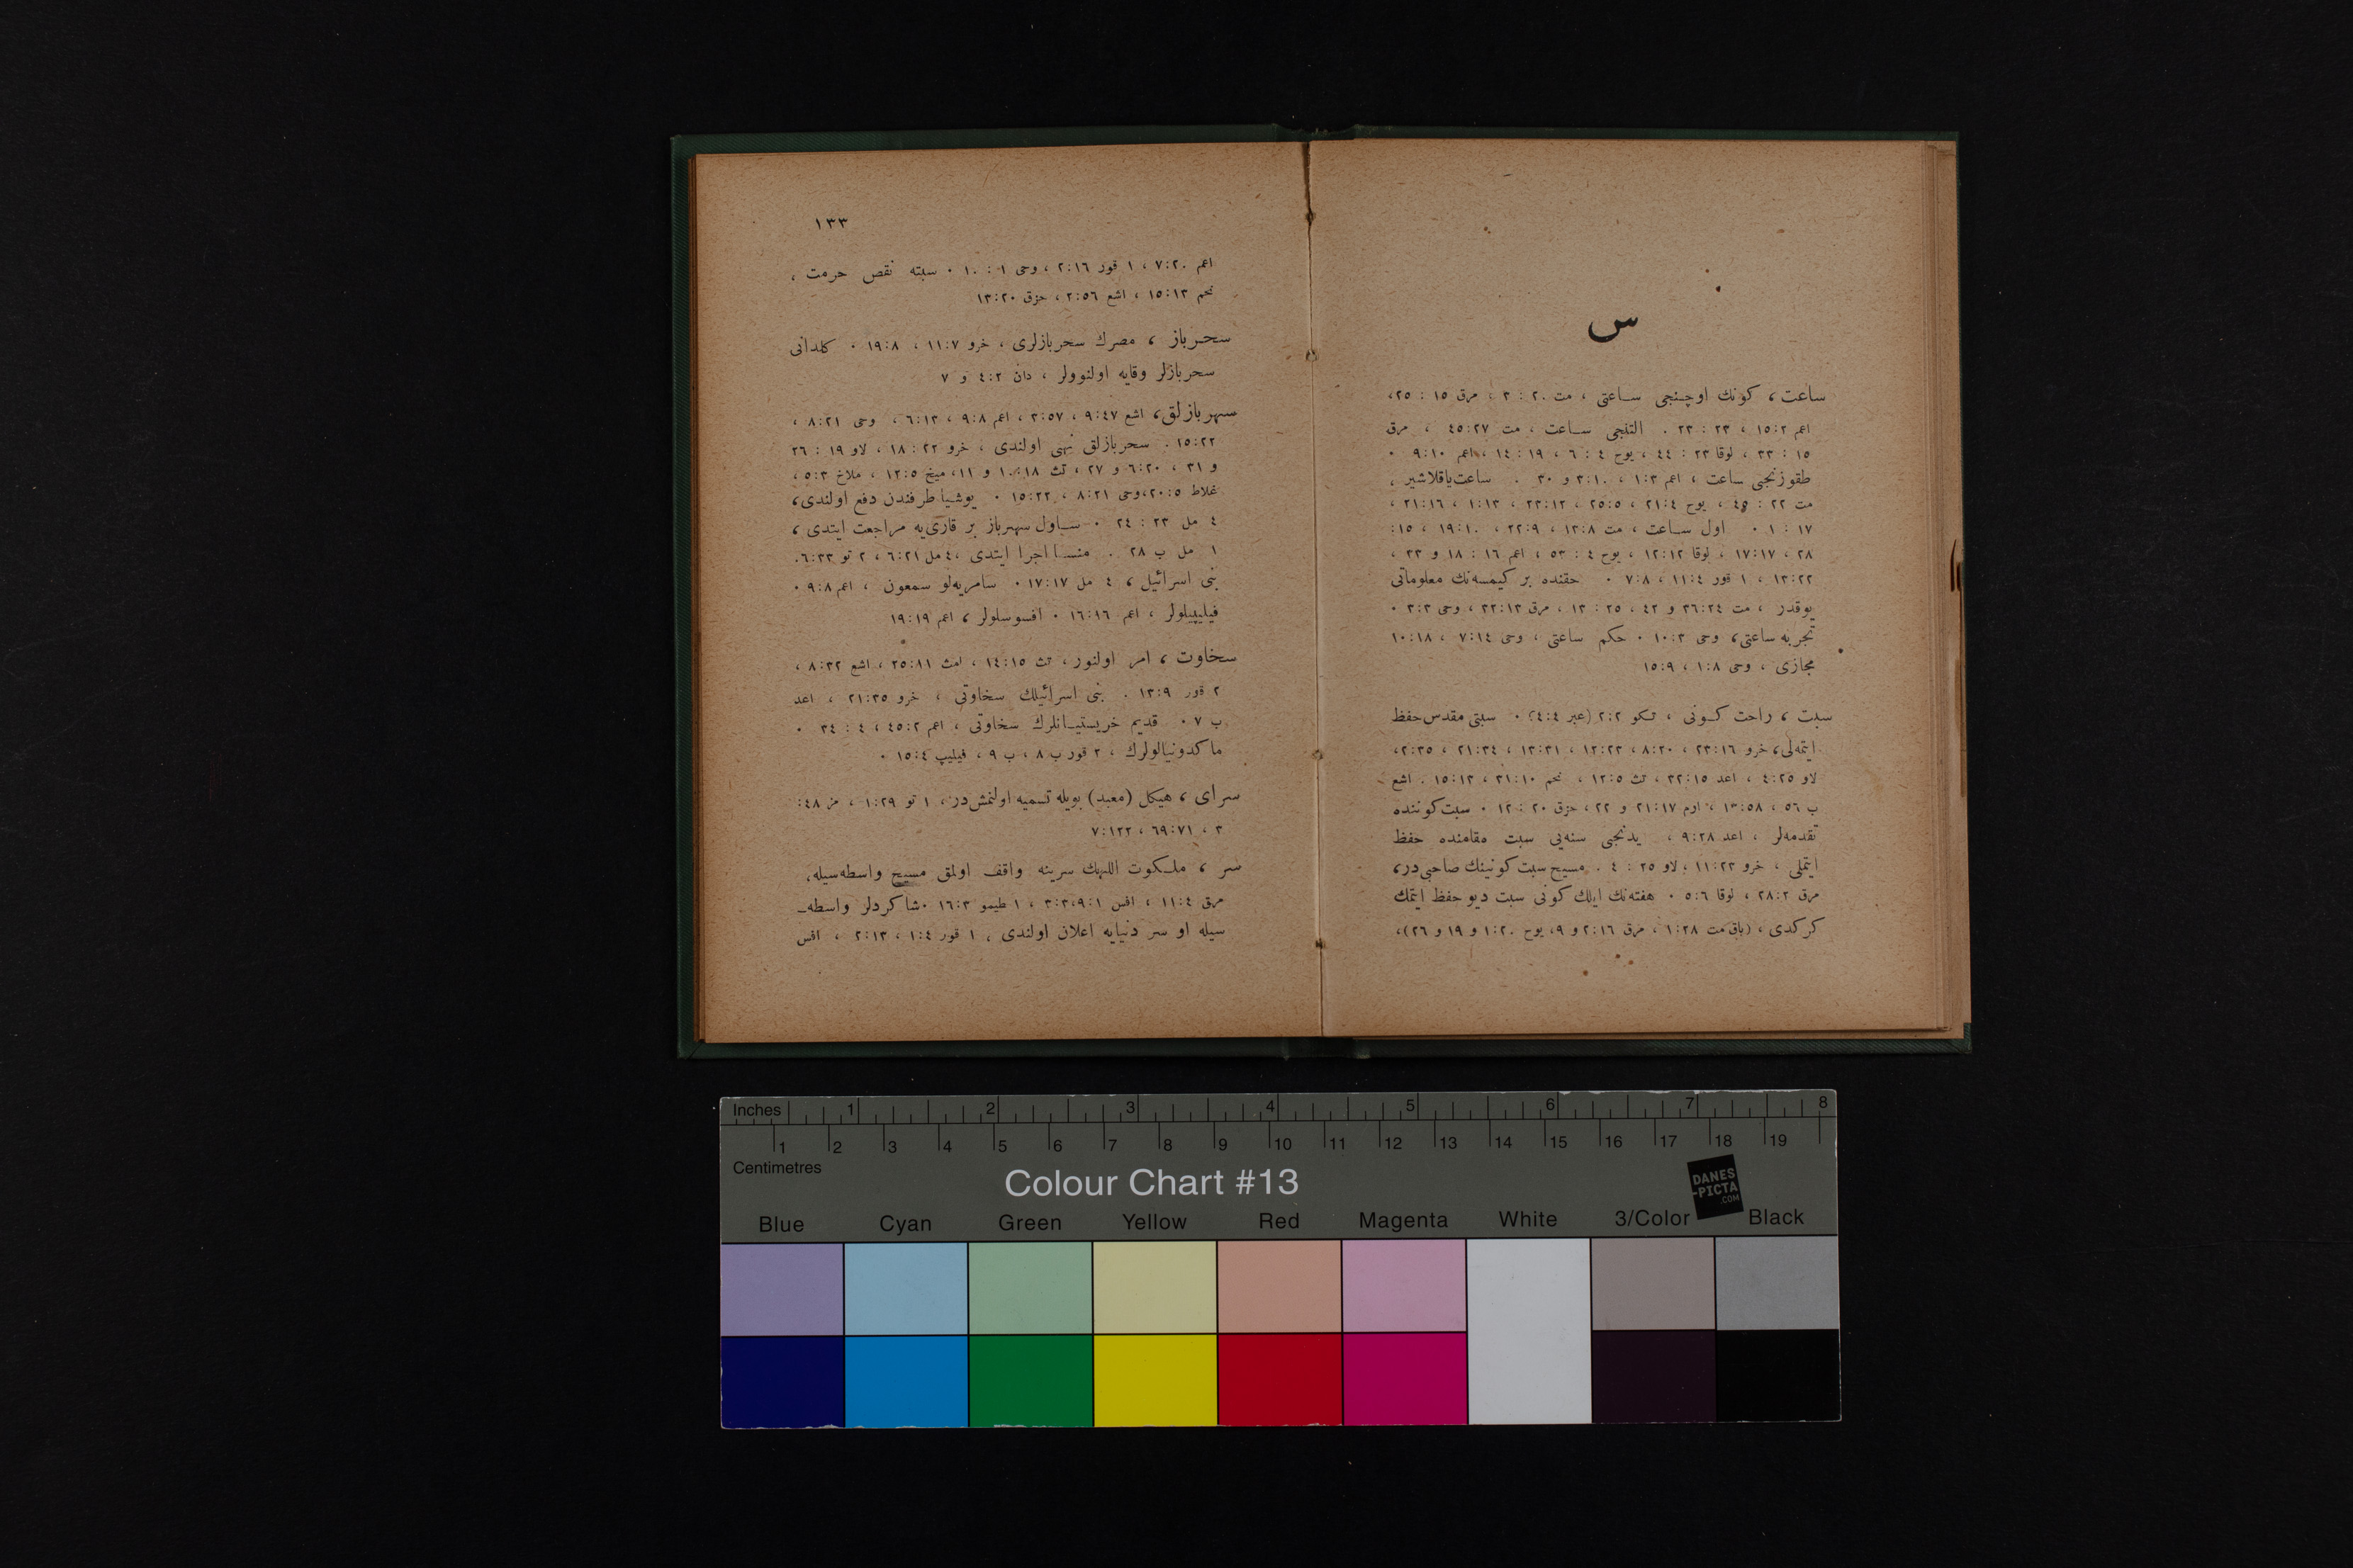 س
ساعت، كونك اوچنجى ساعتى ، مت ٢٠ : ٣ ، مرق ١٥ : ٢٥،
اعم ١٥:٢ ، ٢٣ : ٢٣ . التنجى ساعت ، مت ٤٥:٢٧ ، مرق
١٥ : ٣٣ ، لوقا ٢٣ : ٤٤ ، يوح ٤ : ٦ ، ١٩ : ١٤ ، اعم ٩:١٠ .
طقوزنجى ساعت ، اعم ١:٣ ، ٣:١٠ و ٣٠ . ساعت ياقلاشير ،
مت ٢٢ : ٤٥ ، يوح ٢١:٤ ، ٢٥:٥ ، ٢٣:١٢ ، ١:١٣ ، ٢١:١٦ ،
١٧ : ١ . اول ساعت ، مت ١٣:٨ ، ٢٢:٩ ، ١٩:١٠ ، ١٥:
٢٨ ، ١٧:١٧ ، لوقا ١٢:١٢ ، يوح ٤ : ٥٣ ، اعم ١٦ : ١٨ و ٣٣ ،
١٣:٢٢ ، ١ قور ١١:٤ ، ٧:٨ . حقنده بر كيمسه‌نك معلوماتى
يوقدر ، مت ٣٦:٢٤ و ٤٢ ، ٢٥ : ١٣ ، مرق ٣٢:١٣ ، وحى ٣:٣ .
تجربه ساعتى، وحى ١٠:٣ . حكم ساعتى ، وحى ٧:١٤ ، ١٠:١٨
مجازى ، وحى ١:٨ ، ١٥:٩
سبت ، راحت كونى ، تكو ٢:٢ (عبر ٤:٤) . سبتى مقدس حفظ
ايتمه‌لى، خرو ٢٣:١٦ ، ٨:٢٠ ، ١٢:٢٣ ، ١٣:٣١ ، ٢١:٣٤ ، ٢:٣٥،
لاو ٤:٢٥ ، اعد ٣٢:١٥ ، تث ١٢:٥ ، نحم ٣١:١٠ ، ١٥:١٣ . اشع
ب ٥٦ ، ١٣:٥٨ ، ارم ٢١:١٧ و ٢٢ ، حزق ٢٠ : ١٢ . سبت كوننده
تقدمه‌لر ، اعد ٩:٢٨ ، يدنجى سنه‌يى سبت مقامنده حفظ
ايتملى ، خرو ١١:٢٣ ، لاو ٢٥ : ٤ . مسيح سبت كونينك صاحبى در،
مرق ٢٨:٢ ، لوقا ٥:٦ . هفته‌نك ايلك كونى سبت ديو حفظ ايتمك
كركدى ، (باق مت ١:٢٨ ، مرق ٢:١٦ و ٩، يوح ١:٢٠ و ١٩ و ٢٦)،
١٣٣
اعم ٧:٢٠ ، ١ قور ٢:١٦ ، وحى ١ : ١٠ . سبته نقص حرمت ،
نحم ١٥:١٣ ، اشع ٢:٥٦ ، حزق ١٣:٢٠
سحرباز ، مصرك سحربازلرى ، خرو ١١:٧ ، ١٩:٨ . كلدانى
سحربازلر وقايه اولنوولر ، دان ٤:٢ و ٧
سهربازلق، اشع ٩:٤٧ ، ٣:٥٧ ، اعم ٩:٨ ، ٦:١٣ ، وحى ٨:٢١ ،
١٥:٢٢ . سحربازلق نهى اولندى ، خرو ٢٢ : ١٨ ، لاو ١٩ : ٢٦
و ٣١ ، ٦:٢٠ و ٢٧ ، تث ١٠:١٨ و ١١، ميخ ١٢:٥ ، ملاخ ٥:٣ ،
غلاط ٢٠:٥،وحى ٨:٢١ ، ١٥:٢٢ . يوشيا طرفندن دفع اولندى،
٤ مل ٢٣ : ٢٤ . ساول سهرباز بر قارى‌يه مراجعت ايتدى ،
١ مل ب ٢٨ . منسا اجرا ايتدى ،٤ مل ٦:٢١ ، ٢ تو ٦:٣٣.
بنى اسرائيل ، ٤ مل ١٧:١٧ . سامريه‌لو سمعون ، اعم ٩:٨ .
فيليپيلولر ، اعم ١٦:١٦ . افسوسلولر ، اعم ١٩:١٩
سخاوت ، امر اولنور ، تث ١٤:١٥ ، امث ٢٥:٨١ ، اشع ٨:٣٢ ،
٢ قور ١٣:٩ . بنى اسرائيلك سخاوتى ، خرو ٢١:٣٥ ، اعد
ب ٧ . قديم خريستيانلرك سخاوتى ، اعم ٤٥:٢ ، ٤ : ٣٤ .
ماكدونيالولرك ، ٢ قور ب ٨ ، ب ٩ ، فيليپ ١٥:٤ .
سراى ، هيكل (معبد) بويله تسميه اولنمش در ، ١ تو ١:٢٩ ، مز ٤٨:
٣ ، ٦٩:٧١ ، ٧:١٢٢
سر ، ملكوت اللهك سرينه واقف اولمق مسيح واسطه‌سيله،
مرق ١١:٤ ، افس ٩:١،٣:٣ ، ١ طيمو ١٦:٣ . شاكردلر واسطه‌ـ
سيله او سر دنيايه اعلان اولندى ، ١ قور ١:٤ ، ٢:١٣ ، افس
Inches 1 2 3 4 5 6 7 8
1 2 3 4 5 6 7 8 9 10 11 12 13 14 15 16 17 18 19
Centimetres
Colour Chart #13
DANES
-PICTA
.COM
Blue Cyan Green Yellow Red Magenta White 3/Color Black